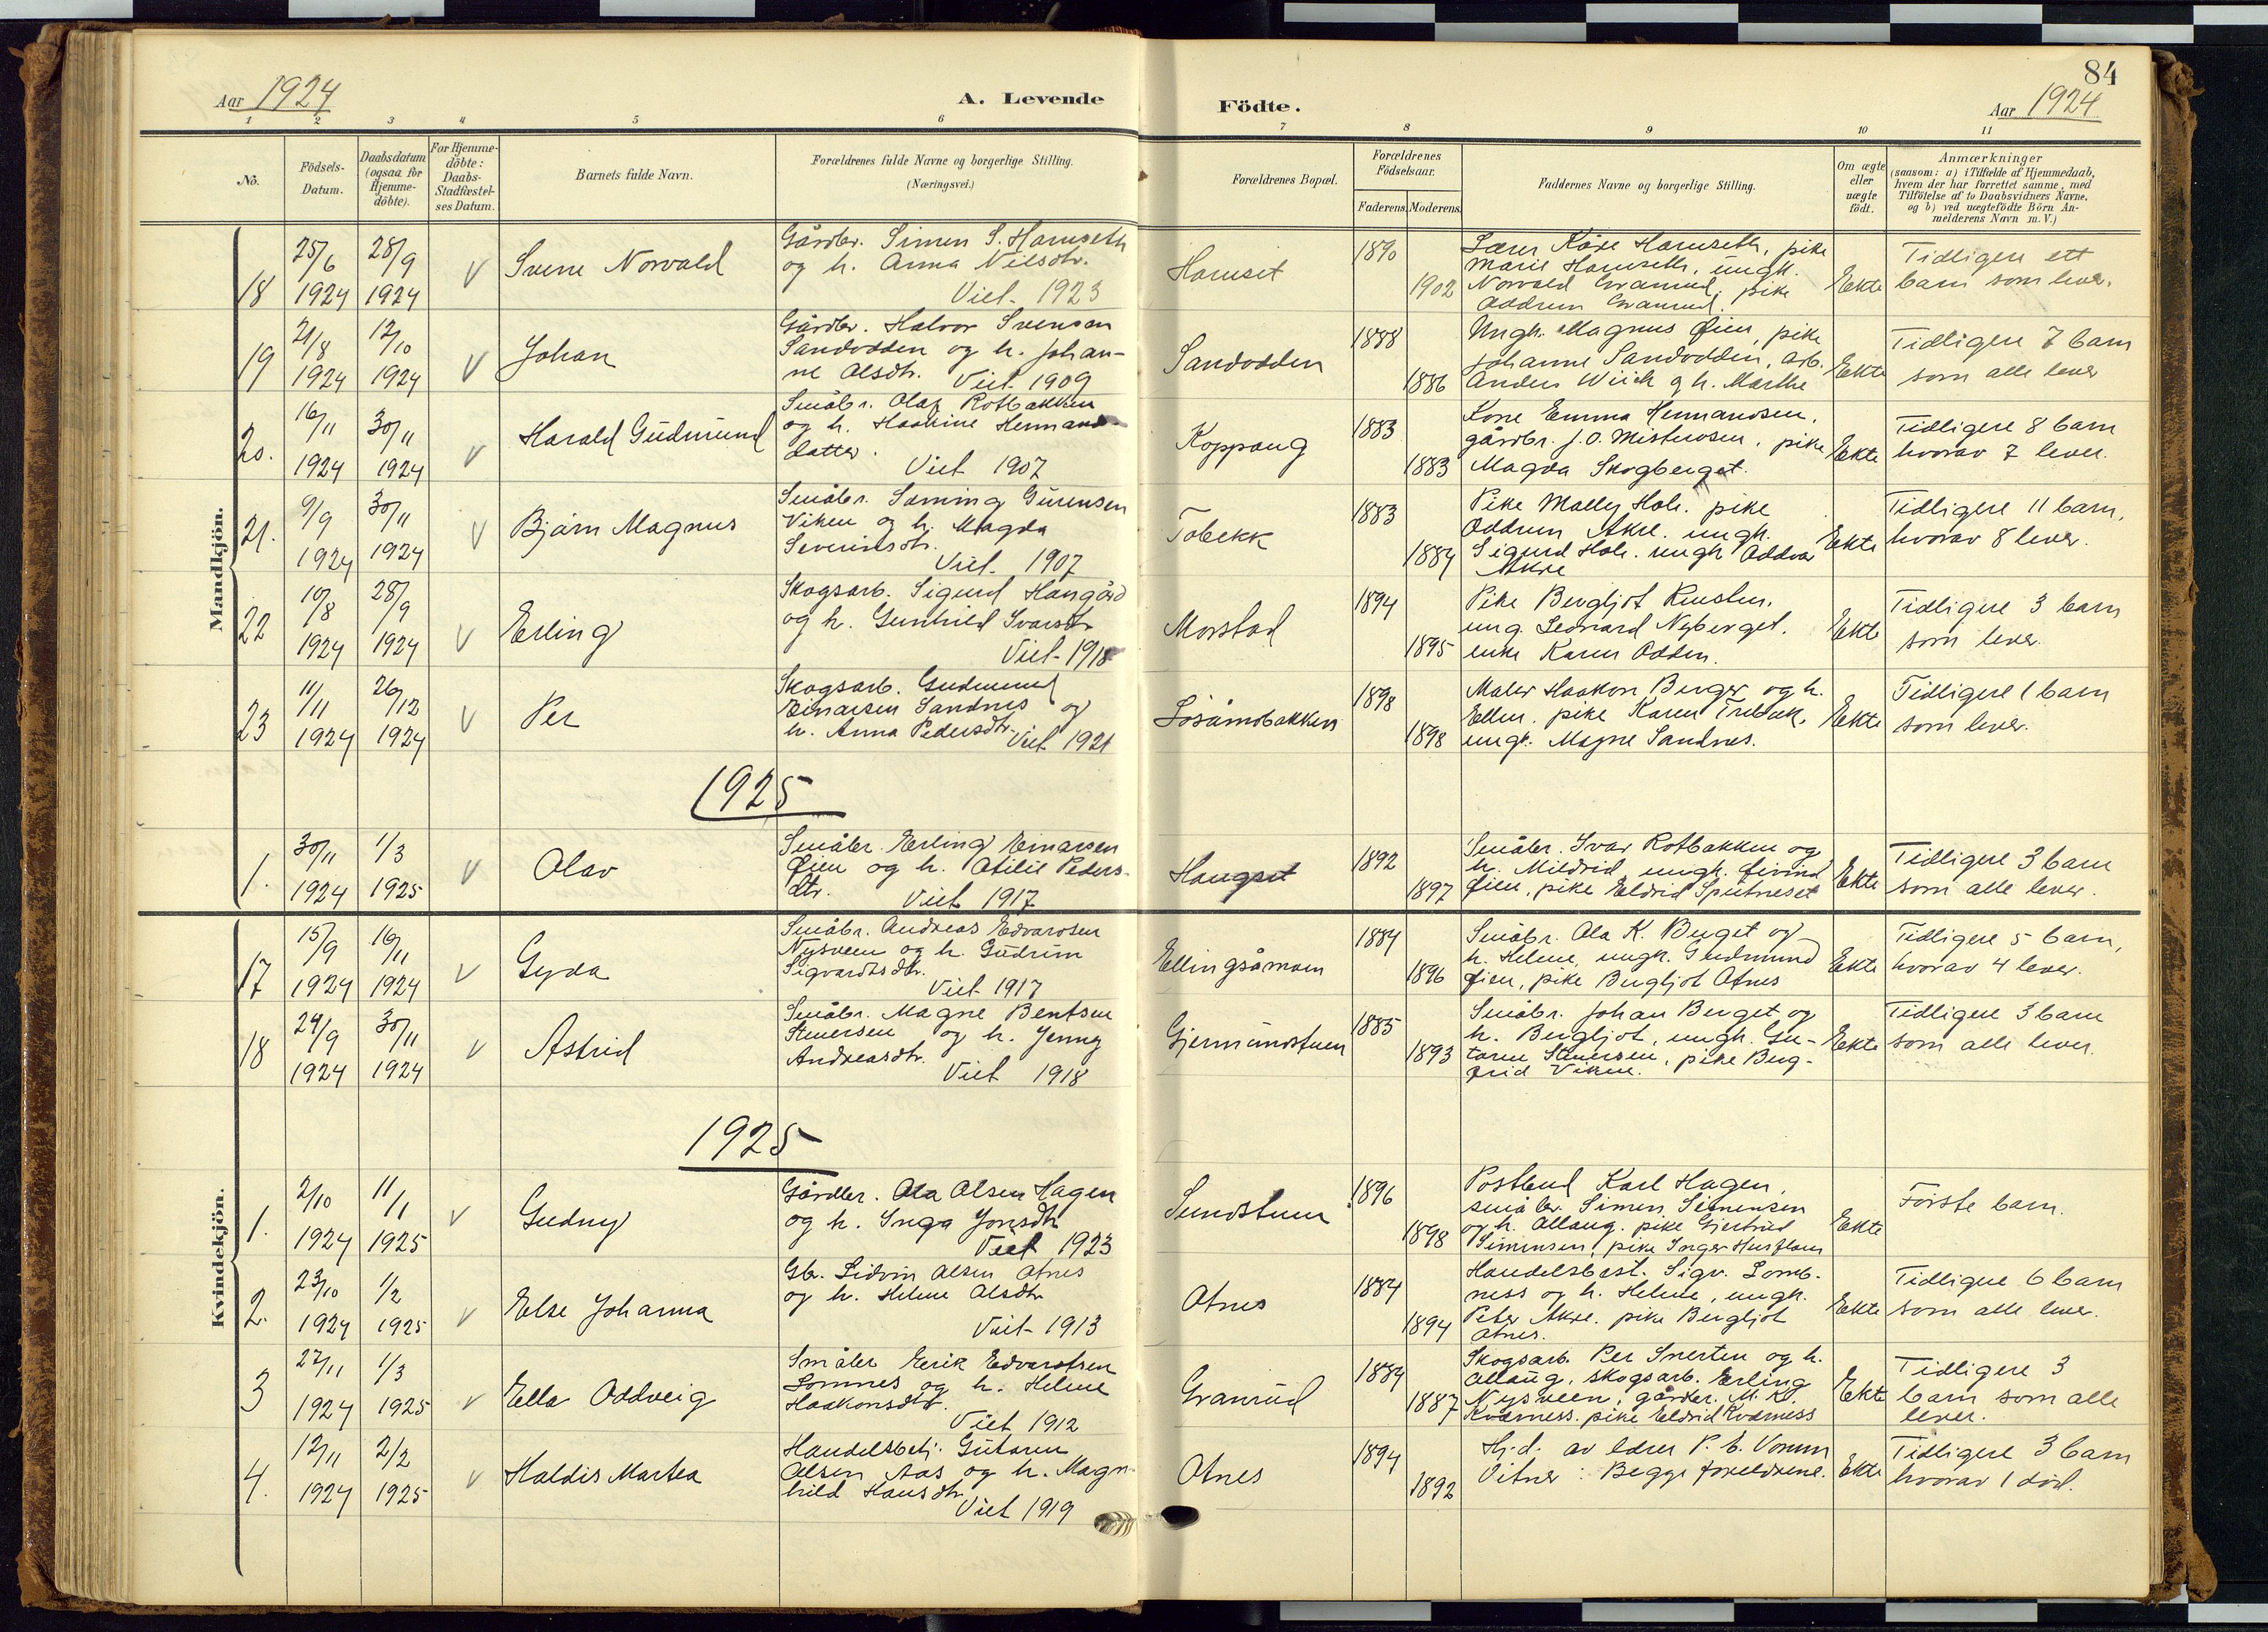 84
Aar 1924
A. Levende
Födte.
Aar 1924
1 2 3 4 5 6 7 8 9 10 11
No.
Födsels-
Datum.
Daabsdatum
(ogsaa for
Hjemme-
döbte).
For Hjemme-
döbte:
Daabs-
Stadfæstel-
ses Datum.
Barnets fulde Navn.
Forældrenes fulde Navne og borgerlige Stilling.
(Næringsvei.)
Forældrenes Bopæl.
Forældrenes
Födselsaar.
Faderens. Moderens.
Faddernes Navne og borgerlige Stilling.
Om ægte
eller
uægte
födt.
Anmærkninger
(saasom: a) i Tilfælde af Hjemmedaab,
hvem der har forrettet samme, med
Tilföielse af to Daabsvidners Navne,
og b) ved uægtefödte Börn An-
melderens Navn m. V.)
Mandkjön.
18
25/6
1924
28/9
1924
V
Sverre Norvald
Gårdbr. Simen S. Harnseth
og h. Anna Nilsdtr.
Viet 1923
Harnset
1890
1902
Lærer Kåre Harnseth, pike
Marie Harnseth, ungk.
Norvald Granrud, pike
Oddrun Granrud.
Ekte
Tidligere ett
barn som lever.
19
21/8
1924
12/10
1924
V
Johan
Gårdbr. Halvor Svensen
Sandodden og h. Johan-
ne Olsdtr. Viet 1909
Sandodden
1888
1886
Ungk. Magnus Øien, pike
Johanne Sandodden, arb.
Anders Wiick og h. Marthe
Ekte
Tidligere 7 barn
som alle lever
20.
16/11
1924
30/11
1924
V
Harald Gudmund
Småbr. Olaf Rotbakken
og h. Haakine Hermans-
datter.
Viet 1907
Koppang
1883
1883
Kone Emma Hermansen,
gårdbr. J. O. Misterosen, pike
Magda Skogberget.
Ekte
Tidligere 8 barn
hvorav 7 lever.
21.
9/9
1924
30/11
1924
V
Bjarn Magnus
Småbr. Sæming Gurensen
Viken og h. Magda
Severinsdtr.
Viet 1907
Tobekk
1883
1884
Pike Molley Hole. pike
Oddrun Akre. ungk.
Sigurd Hole. ungk Oddvar
Akre
Ekte
Tidligere 11 barn,
hvorav 8 lever.
22
10/8
1924
28/9
1924
V
Erling
Skogsarb. Sigurd Haugård
og h. Gunhild Ivarsdtr
Viet 1918
Morstad
1894
1895
Pike Bergljot Kusten.
ung. Leonard Nyberget.
enke Karen Odden.
Ekte
Tidligere 3 barn
som lever.
23
11/11
1924
26/12
1924
V
Per
Skogsarb. Gudmund
Einarsen Sandnes og
h. Anna Pedersdtr. Viet 1921
Losåmobakken
1898
1898
Maler Haakon Berger og h.
Ellen. pike Karen Trebak,
ungk. Magne Sandnes.
Ekte
Tidligere 1 barn
som lever.
1925
1.
30/11
1924
1/3
1925
V
Olav
Småbr. Erling Einarsen
Øien og h. Otilie Peders-
dtr.
Viet 1917
Haugset
1892
1897
Småbr. Ivar Rotbakken og
h. Mildrid, ungk. Eivind
Øien, pike Eldrid Sputneset
Ekte
Tidligere 3 barn
som alle lever.
Kvindekjön.
17
15/9
1924
16/11
1924
V
Gyda
Småbr. Andreas Edvardsen
Nysveen og h. Gudrun
Sigvardtsdtr.
Viet 1917
Ellingsåmoen
1884
1896
Småbr. Ola K. Berget og
h. Helene, ungk. Gudmund
Øien, pike Bergljot Atnes
Ekte
Tidligere 5 barn,
hvorav 4 lever.
18
29/9
1924
30/11
1924
V
Astrid
Småbr. Magne Bentsen
Stenersen og h. Jenny
Andreasdtr.
Viet 1918
Gjermundstuen
1885
1893
Småbr. Johan Berget og
h. Bergljot, ungk. Gu-
torm Stenersen, pike Berg-
frid Viken.
Ekte
Tidligere 3 barn
som alle lever.
1925
1.
2/10
1924
11/1
1925
V
Gudny
Gårdbr. Ola Olsen Hagen
og h. Inga Jonsdtr
Viet 1923
Sundstuen
1896
1898
Postbud Karl Hagen,
småbr. Simen Simensen
og h. Ollaug. pike Gjertrud
Simensen, pike Inger Husfloen
Ekte
Förste barn.
2.
23/10
1924
1/2
1925
V
Else Johanna
Gbr. Sidvin Olsen Atnes
og h. Helene Olsdtr
Viet 1913
Atnes
1884
1894
Handelsbest. Sigv. Lomb-
ness og h. Helene, ungk.
Peter Akre. pike Bergljot
Atnes.
Ekte
Tidligere 6 barn
som alle lever.
3
27/11
1924
1/3
1925
V
Ella Oddveig
Småbr Eerik Edvardsen
Lomnes og h. Helene
Haakonsdtr.
Viet 1912
Granrud
1884
1887
Skogsarb. Per Snerten og h.
Ollaug, skogsarb. Erling
Nysveen, gårdbr. M. K.
Kværness. pike Eldrid Kværness
Ekte
Tidligere 3
barn som alle
lever.
4.
12/11
1924
2/2
1925
V
Haldis Martea
Handelsbetj. Gutorm
Olsen Aas og h. Magn-
hild Hansdtr
Viet 1919
Atnes
1894
1892
Hj.d. av lærer P. E. Vorum
Vitner: Begge foreldrene.
Ekte
Tidligere 3 barn
hvorav 1 död.